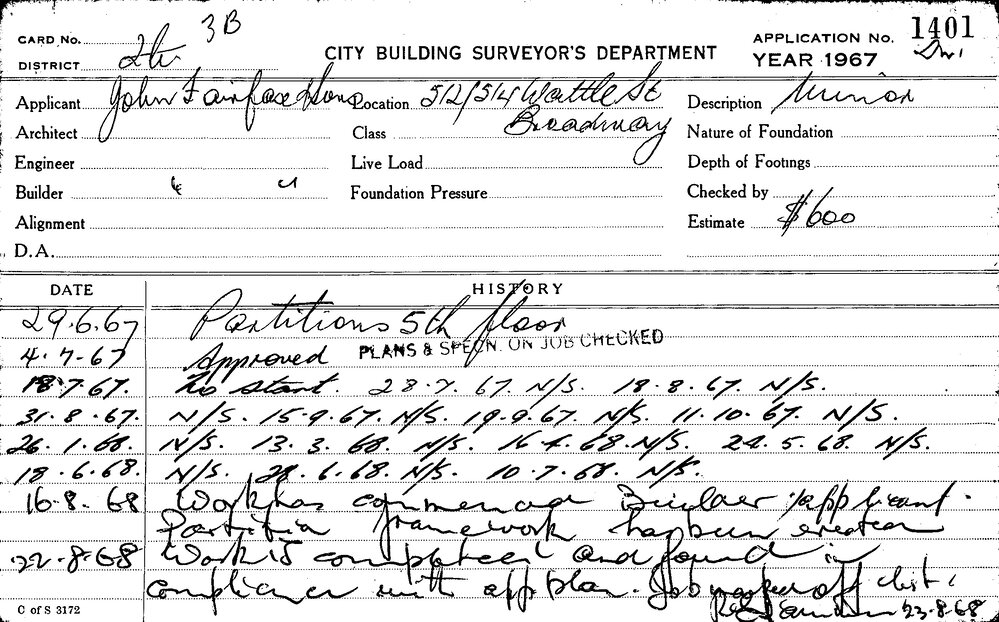 3B
CARD No.
DISTRICT
CITY BUILDING SURVEYOR'S DEPARTMENT
APPLICATION No. 1401
YEAR 1967
Applicant John Fairfax & Sons
Location 512/514 Wattle St
Broadway
Description Minor
Architect
Class
Nature of Foundation
Engineer
Live Load
Depth of Footings
Builder " "
Foundation Pressure
Checked by
Alignment
Estimate $600
D.A.
DATE HISTORY
29.6.67 Partitions 5th floor
4.7.67 Approved PLANS & SPECN. ON JOB CHECKED
18.7.67. No start. 28.7.67. N/S. 18.8.67. N/S.
31.8.67. N/S. 15.9.67. N/S. 19.9.67. N/S. 11.10.67. N/S.
26.1.68. N/S. 13.3.68. N/S. 16.4.68. N/S. 24.5.68. N/S.
18.6.68. N/S. 28.6.68. N/S. 10.7.68. N/S.
16.8.68 Work has commenced Builder applicant.
Partition framework has been erected
22.8.68 Work is completed and found in
compliance with app plan. Job off list.
23.8.68
C of S 3172